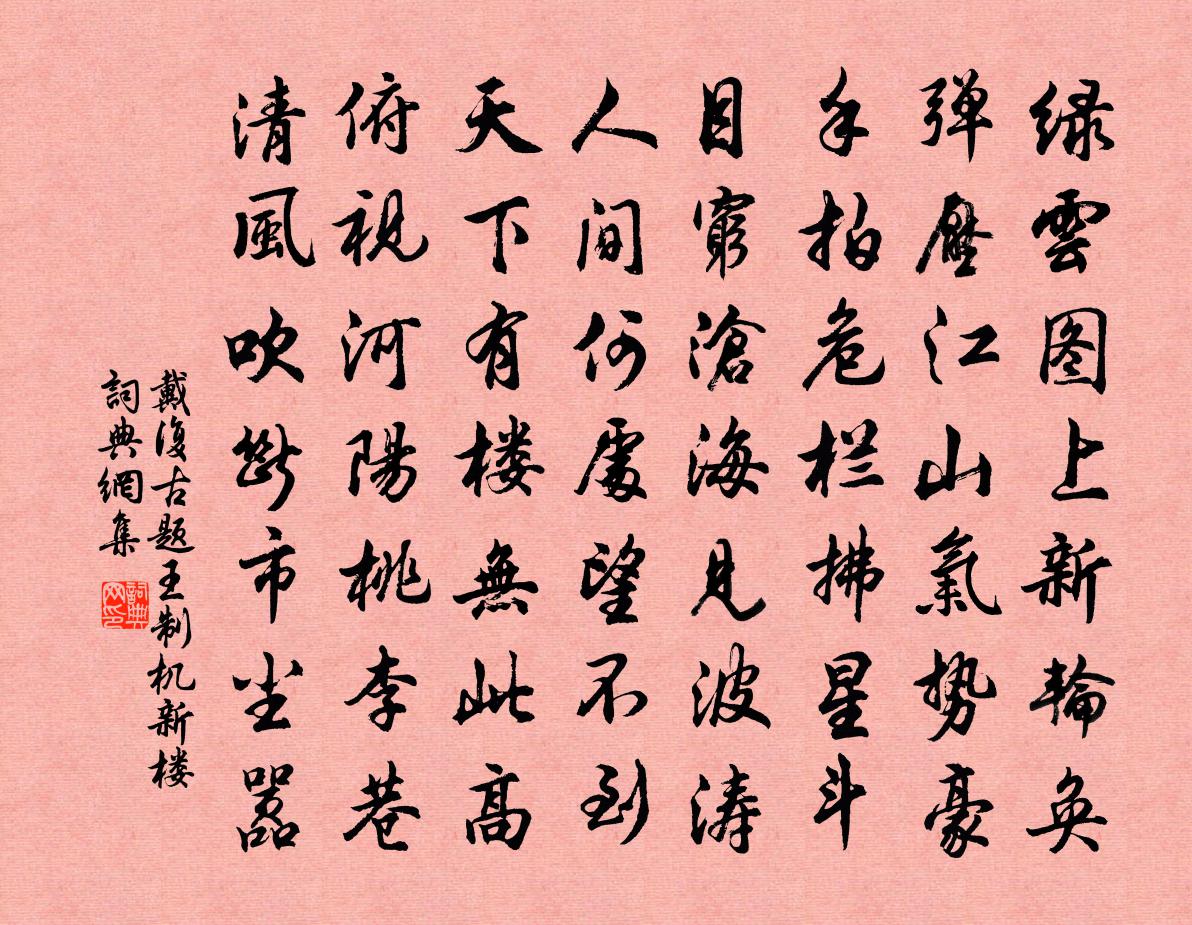 绿雲图上新輪奂
弹壓江山氣势豪
手拍危栏拂星斗
目窮滄海見波涛
人间何處望不到
天下有楼無此高
俯視河陽桃李巷
清風吹断市尘嚣
戴復古题王制机新楼
詞典網集
詞典网印